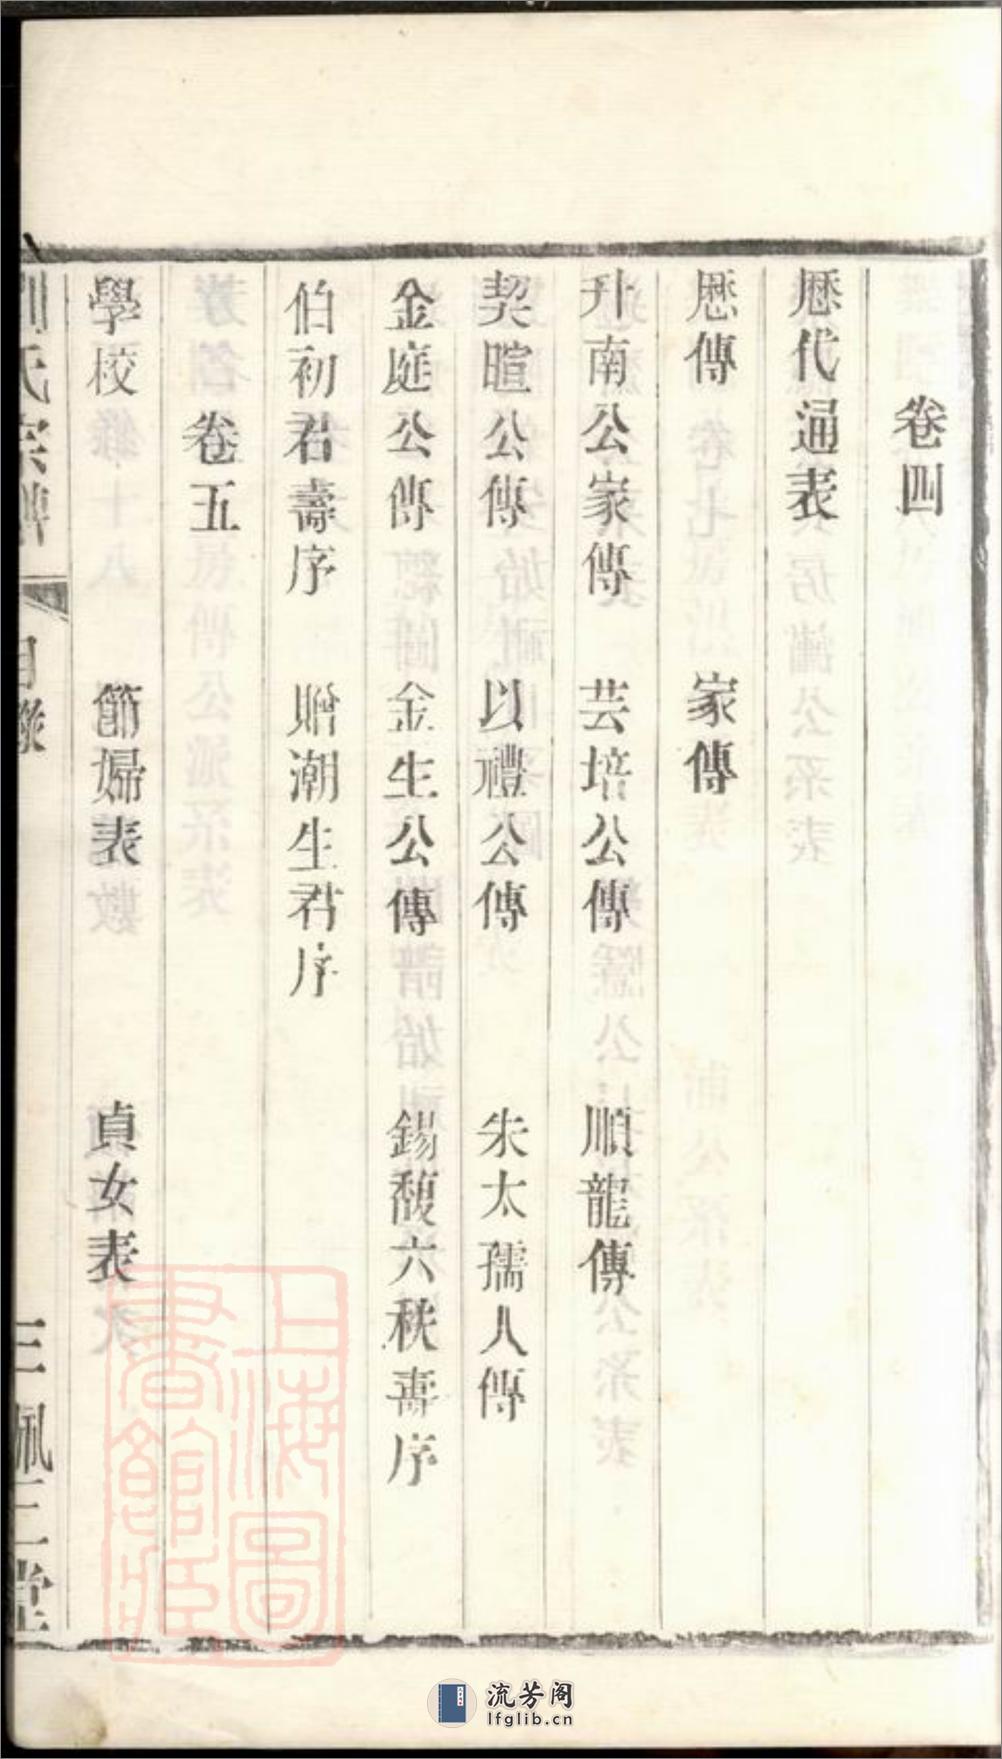 卷四
歷代通表
歷傳 家傳
升南公家傳 芸培公傳 順龍傳
契暄公傳 以禮公傳 朱太孺人傳
金庭公傳 金生公傳 錫馥六秩壽序
伯初君壽序 贈潮生君序
卷五
學校 節婦表 貞女表
氏宗譜 目錄 三 佩三堂
上海圖書館藏
流芳阁
lfglib.cn